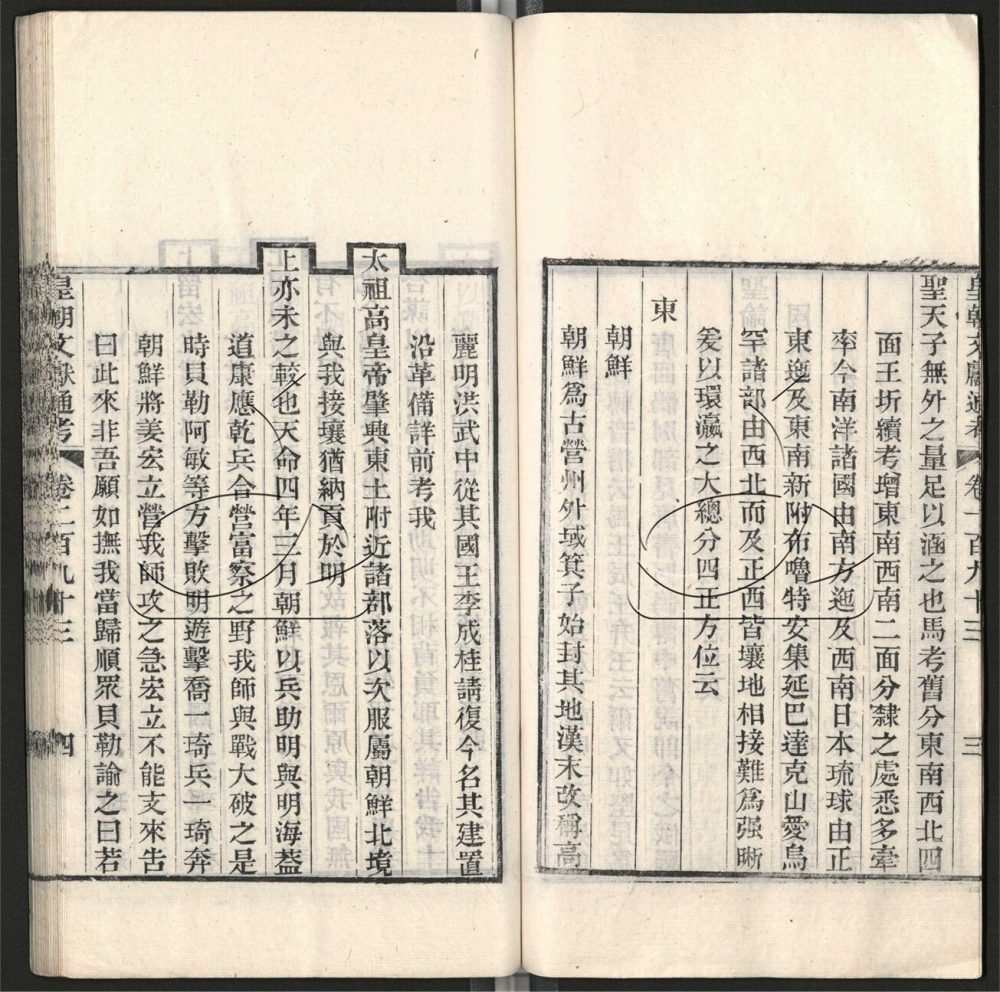 皇朝文獻通考 卷二百九十三 三
聖天子無外之量足以涵之也馬考舊分東南西北四
面王圻續考增東南西南二面分隸之處悉多牽
率今南洋諸國由南方迤及西南日本琉球由正
東迤及東南新附布嚕特安集延巴達克山愛烏
罕諸部由西北而及正西皆壤地相接難爲强晰
爰以環瀛之大總分四正方位云
東
朝鮮
朝鮮爲古營州外域箕子始封其地漢末改稱高
麗明洪武中從其國王李成桂請復今名其建置
沿革備詳前考我
太祖高皇帝肇興東土附近諸部落以次服屬朝鮮北境
與我接壤猶納貢於明
上亦未之較也天命四年三月朝鮮以兵助明與明海葢
道康應乾兵合營富察之野我師與戰大破之是
時貝勒阿敏等方擊敗明遊擊喬一琦兵一琦奔
朝鮮將姜宏立營我師攻之急宏立不能支來告
曰此來非吾願如撫我當歸順眾貝勒諭之曰若
皇朝文獻通考 卷二百九十三 四